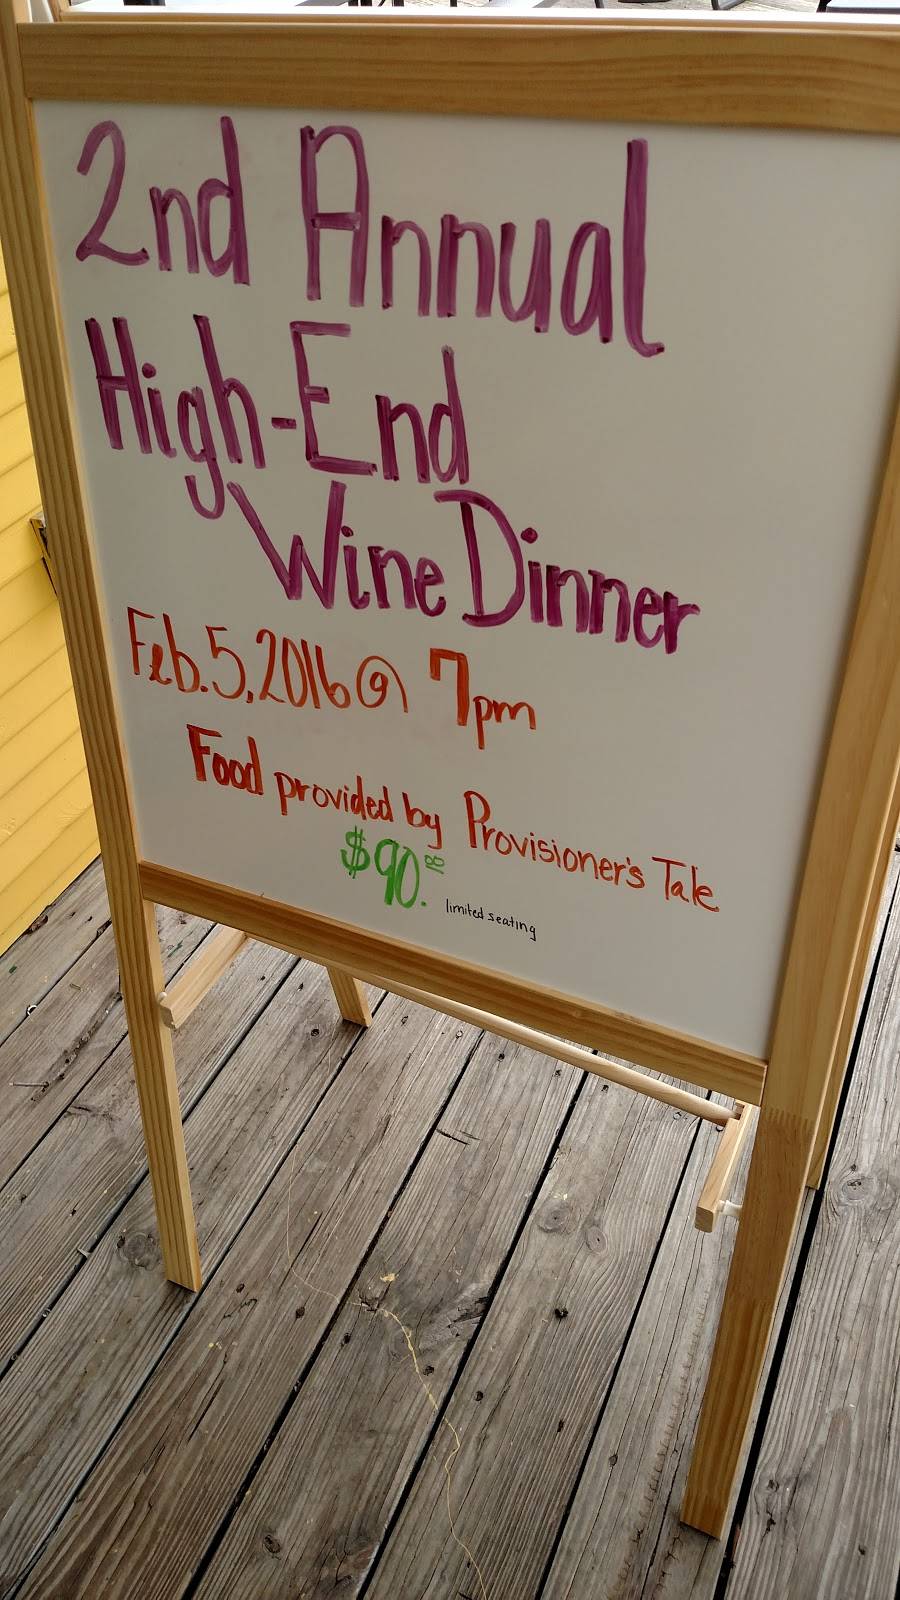 2nd Annual
High-End
Wine Dinner
Feb. 5, 2016 @ 7pm
Food provided by Provisioner's Tale
$90.00
limited seating